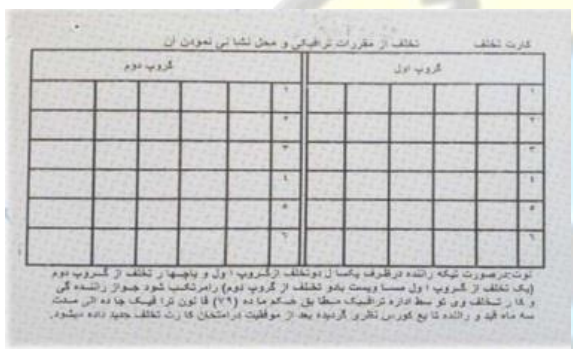 کارت تخلف تخلف از مقررات ترافیکی و محل نشا نی نمودن آن
گروپ اول گروپ دوم
۱ ۱
۲ ۲
۳ ۳
٤ ٤
۵ ۵
٦ ٦
نوت:درصورت تیکه راننده درظرف یکسا ل دوتخلف ازگروپ ا ول و یاچها ر تخلف از گروپ دوم
(یک تخلف از گروپ ا ول مسا ویست بادو تخلف از گروپ دوم) رامرتکب شود جواز راننده گی
و کا ر ت تخلف وی تو سط اداره ترافیک مطا بق حکم ما ده (۷۹) قا نون ترا فیک جا ده الی مدت
سه ماه قید و راننده تا بع کورس نظری گردیده بعد از موفقیت درامتحان کا رت تخلف جدید داده میشود.